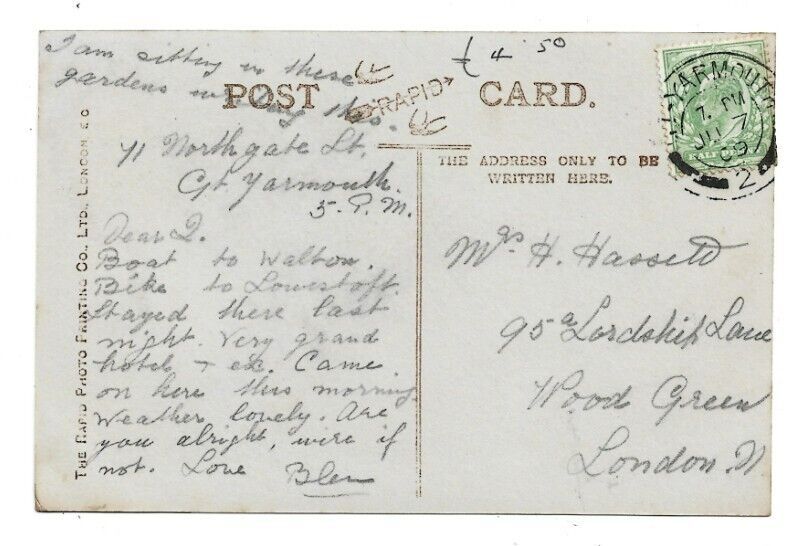 I am sitting in these
gardens writing this.
£ 4.50
POST CARD.
RAPID
THE ADDRESS ONLY TO BE
WRITTEN HERE.
YARMOUTH
7. PM
JU 7
09
2
HALF PENNY
71 Northgate St.
Gt Yarmouth.
5. P.M.
Dear Q.
Boat to Walton.
Bike to Lowestoft.
Stayed there last
night. Very grand
hotel + ex. Came
on here this morning
Weather lovely. Are
you alright, wire if
not. Love
Mrs H. Hassett
95a Lordship Lane
Wood Green
London N
THE RAPID PHOTO PRINTING CO., LTD., LONDON EC